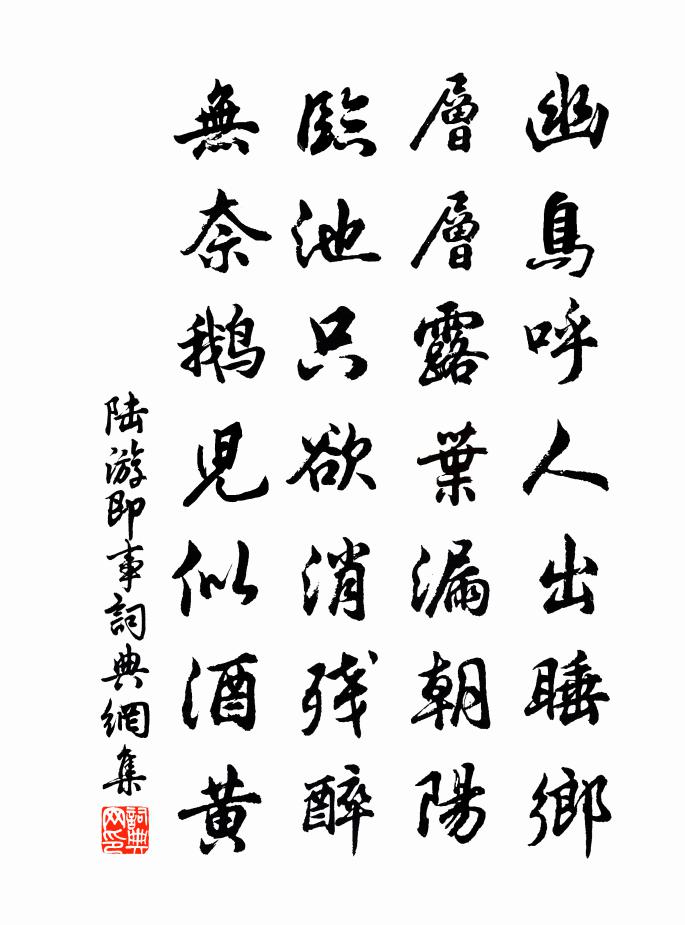 幽鳥呼人出睡鄉
層層露葉漏朝陽
臨池只欲消殘醉
無奈鵝兒似酒黃
陆游即事詞典網集
詞典网印